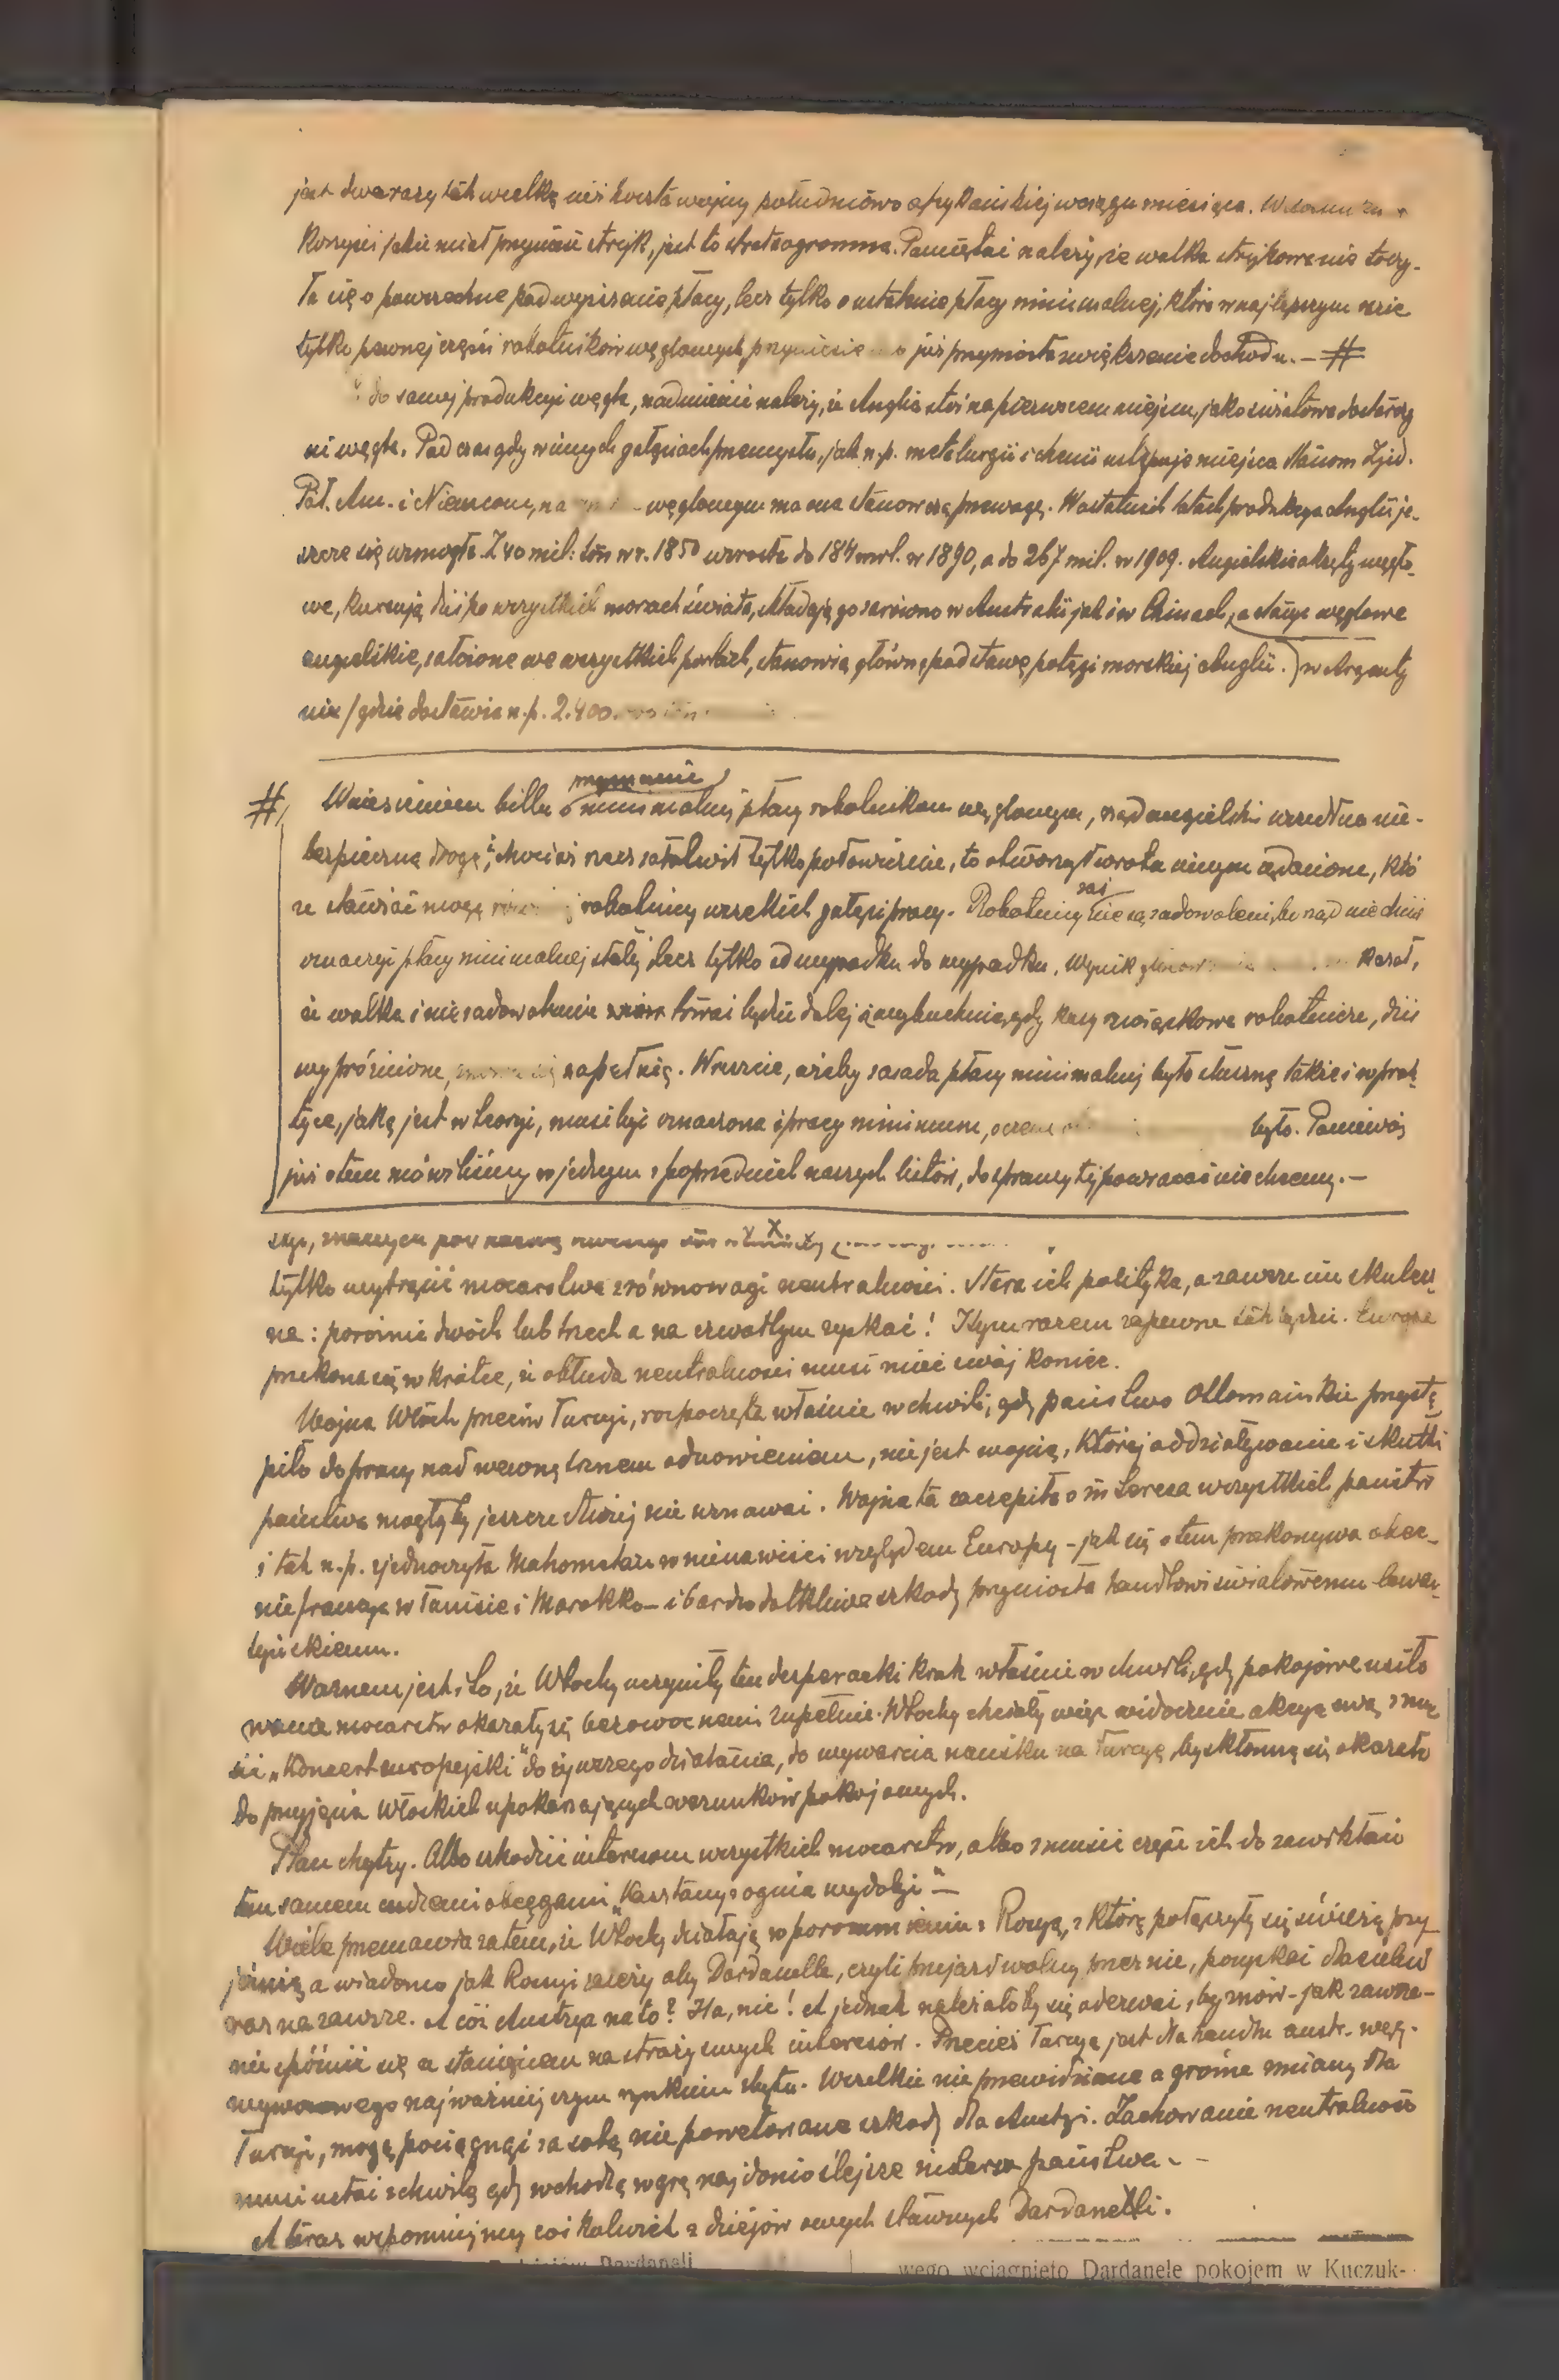 jest dwa razy tak wielką niż koszta wojny południowo afrykańskiej w ciągu miesiąca. W stosunku
korzyści jakie miał przynieść strejk, jest to strata ogromna. Pamiętać należy, że walka strejkowa nie toczy-
ła się o powszechne podwyższenie płacy, lecz tylko o ustalenie płacy minimalnej, która w najlepszym razie
tylko pewnej części robotników węglowych przyniesie już przyniosła zwiększenie dochodu. — #
do samej produkcyi węgla, nadmienić należy, że Anglia stoi na pierwszem miejscu, jako światowa dostarczy
ni węgla. Podczas gdy w innych gałęziach przemysłu, jak n.p. metalurgii i chemii ustępuje miejsca Stanom Zjed.
Pół. Am. i Niemcom, na węglowym ma ona stanowczą przewagę. W ostatnich latach produkcya Anglii je-
szcze się wzmogła. Z 40 mil: ton w r. 1850 wzrosła do 184 mil. w 1890, a do 267 mil. w 1909. Angielskie okręty węglo-
we, kursują dziś po wszystkich morzach świata, składają go zarówno w Australii jak i w Chinach, a stacye węglowe
angielskie, założone we wszystkich portach, stanowią główną podstawę potęgi morskiej Anglii. ) w Argenty
nie / gdzie dostawia n.p. 2.400.
# Wniesieniem billu o minimalnej płacy robotnikom węglowym, rząd angielski wszedł na nie-
bezpieczną drogę; chociaż rzecz załatwił tylko połowicznie, to otworzył wrota innym żądaniom, któ
re stawiać mogą robotnicy wszelkich gałęzi pracy. Robotnicy zaś nie są zadowoleni, bo rząd nie chciał
oznaczyć płacy minimalnej stałej lecz tylko od wypadku do wypadku. Wynik kazał,
że walka i niezadowolenie trwać będzie dalej i wybuchnie, gdy kasy związkowe robotnicze, dziś
wypróżnione, zapełnią. Wreszcie, ażeby zasada płacy minimalnej była słuszną także i w prak-
tyce, jaką jest w teoryi, musi być oznaczona i pracy minimum, o czem było. Ponieważ
już o tem mówiliśmy w jednym z poprzednich naszych listów, do sprawy tej powracać nie chcemy. —
tylko wytrącić mocarstwa z równowagi neutralności. Stara ich polityka, a zawsze im skutecz-
na: poróżnić dwóch lub trzech a na czwartym zyskać! I tym razem zapewne tak będzie. Europa
przekona się w krótce, że obłuda neutralności musi mieć swój koniec.
Wojna Włoch przeciw Turcyi, rozpoczęta właśnie w chwili, gdy państwo Ottomańskie przystą-
piło do pracy nad wewnętrznem odnowieniem, nie jest wojną, której oddziaływanie i skutki
państwa mogłyby jeszcze dłużej nie uznawać. Wojna ta zaczepiła o interesa wszystkich państw
i tak n.p. zjednoczyła Mahometan w nienawiści względem Europy - jak się o tem przekonywa obec-
nie francya w Tunisie i Marokko - i bardzo dotkliwe szkody przyniosła handlowi światowemu lewan-
tyńskiemu.
Ważnem jest i to, że Włochy uczyniły ten desperacki krok właśnie w chwili, gdy pokojowe usiło
wania mocarstw okazały się bezowocnemi zupełnie. Włochy chciały więc widocznie akcyą swą zmu
sić „Koncert europejski" do żywszego działania, do wywarcia nacisku na Turcyę, by skłonną się okazała
do przyjęcia Włoskich upokarzających warunków pokojowych.
Plan chytry. Albo szkodzić interesom wszystkich mocarstw, albo zmusić część ich do zawikłań
tem samem cudzemi obcęgami „Kasztany z ognia wydobyć" —
Wiele przemawia zatem, że Włochy działają w porozumieniu z Rosyą, z którą połączyły się świeżą przy
jaźnią, a wiadomo jak Rosyi zależy aby Dardanelle, czyli przejazd wolny przez nie, pozyskać dla siebie
raz na zawsze. A cóż Austrya na to? Ha, nic! A jednak należałoby się odezwać, by znów - jak zawsze -
nie spóźnić się ze stanięciem na straży swych interesów. Przecież Turcya jest dla handlu austr. węg.
wywozowego najważniejszym rynkiem zbytu. Wszelkie nieprzewidziane a groźne zmiany dla
Turcyi, mogą pociągnąć za sobą nie powetowane szkody dla Austryi. Zachowanie neutralności
musi ustać z chwilą gdy wchodzą w grę najdonioślejsze interesa państwa. -
A teraz wspomnijmy cośkolwiek z dziejów owych sławnych Dardanelli.
Dardaneli
wego wciągnięto Dardanele pokojem w Kuczuk-